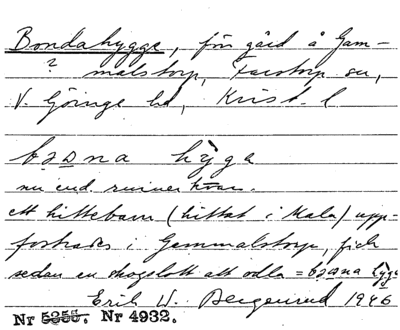 Bondahygge, förr gård å Gam-
? malstorp, Farstorp sn,
V. Göinge hd, Krist. l
bǝsna hȳga
nu end. ruiner kvar.
ett hittebarn (hittat i Mala) upp-
fostrades i Gemmalstorp, fick
sedan en skogslott att odla = bǝsana hȳga
Erik W. Bergenrud 1946
Nr 5255. Nr 4932.